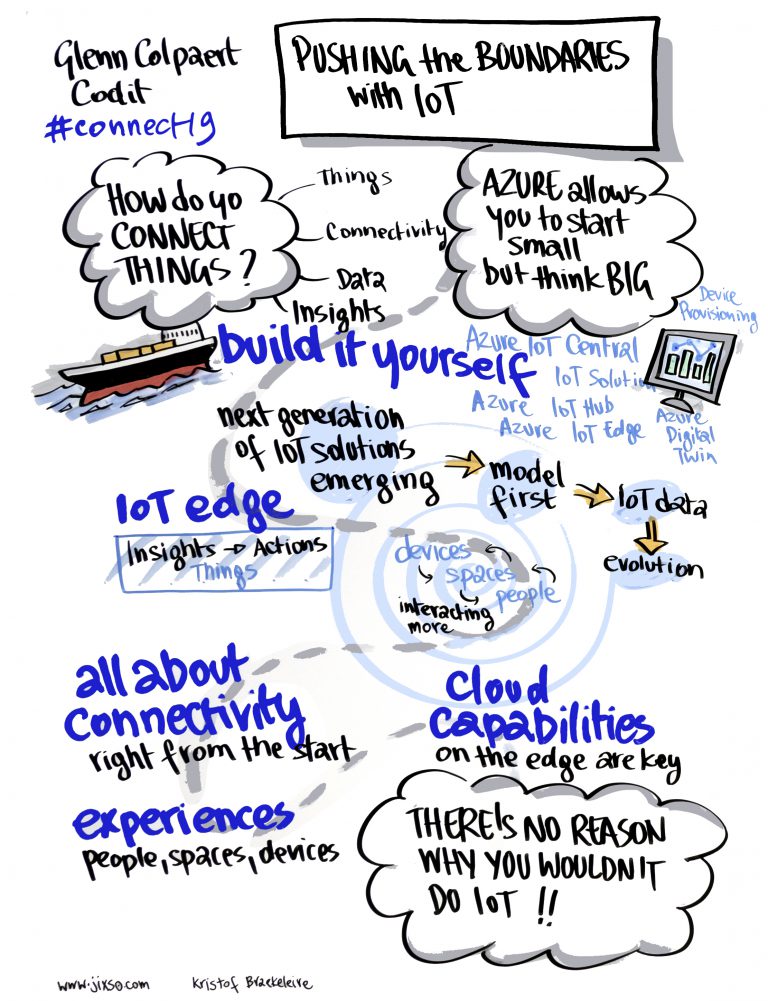 Glenn Colpaert
Codit
#connect19
PUSHING the BOUNDARIES
with IoT
HOW do yo
CONNECT
THINGS?
Things
Connectivity
Data
Insights
AZURE allows
you to start
small
but think BIG
Device
Provisioning
build it yourself
Azure IoT Central
IoT Solution
Azure IoT Hub
Azure IoT Edge
Azure
Digital
Twin
next generation
of IoT solutions
emerging
model
first
IoT data
evolution
IoT edge
Insights → Actions
Things
devices
spaces
people
interacting
more
all about
connectivity
right from the start
cloud
capabilities
on the edge are key
experiences
people, spaces, devices
THERE'S NO REASON
WHY YOU WOULDN'T
DO IoT !!
www.jixso.com
Kristof Braekeleire